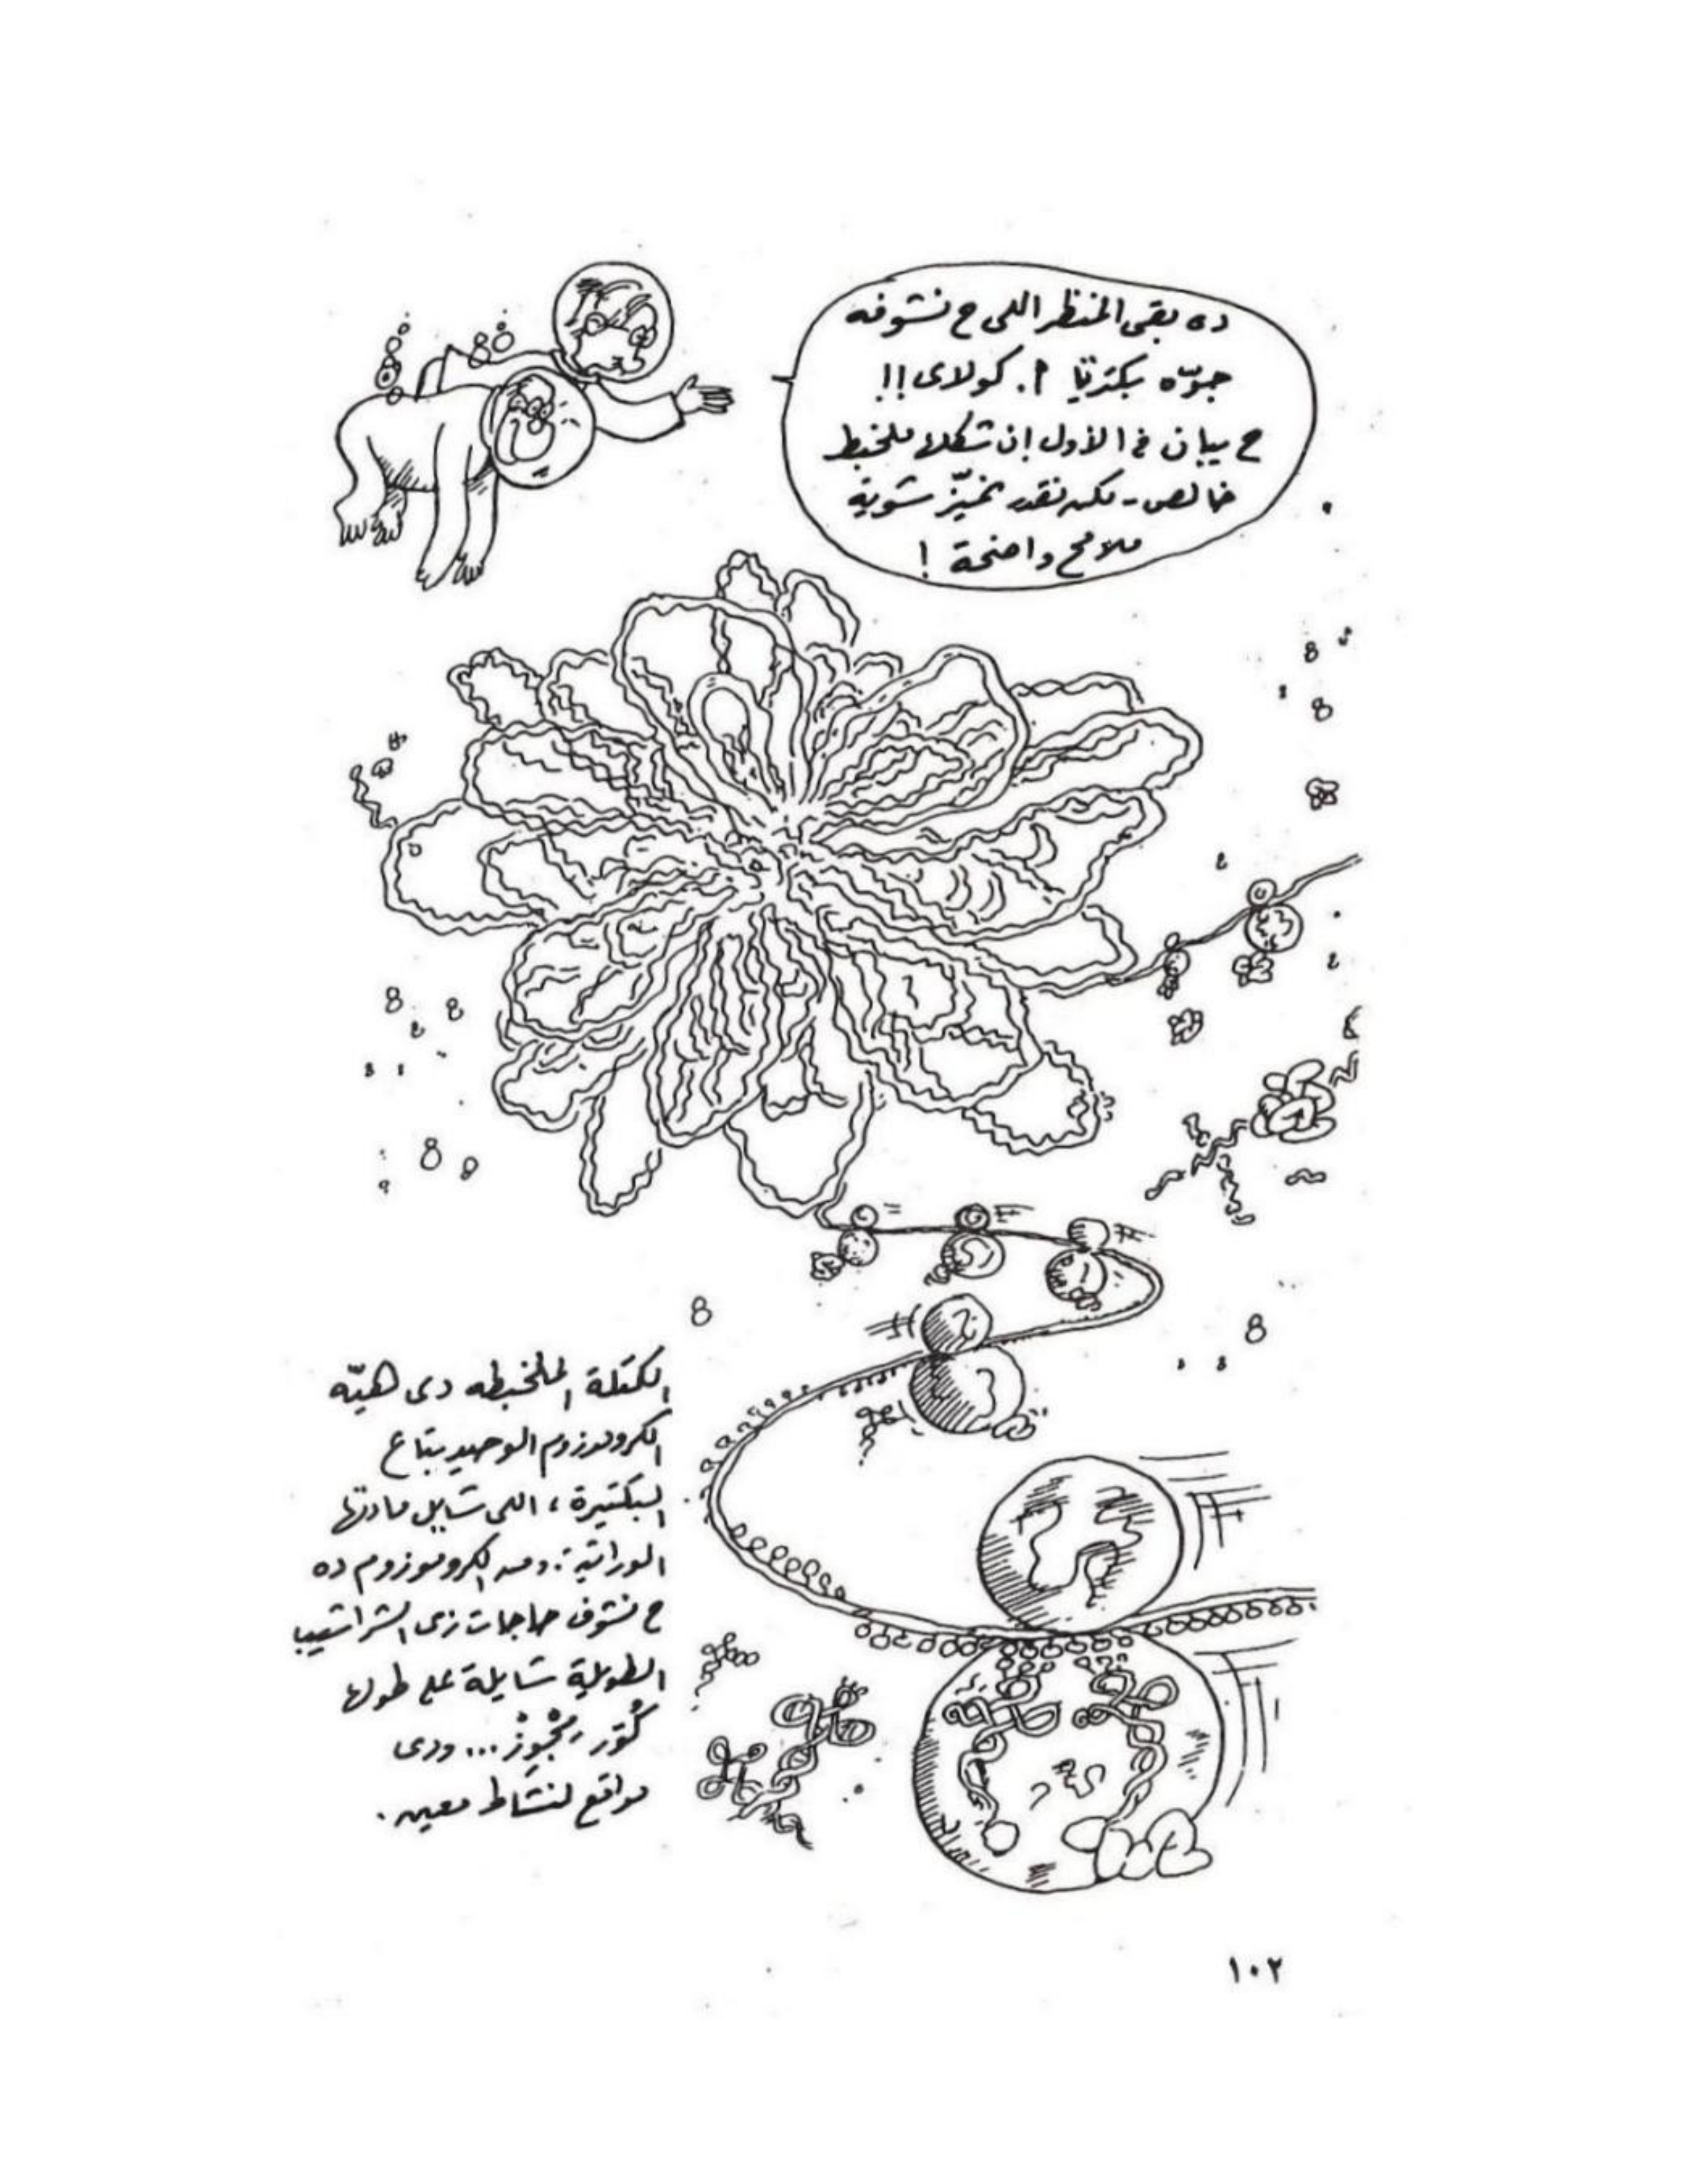 ده بقى المنظر اللى ح نشوفه
جوّه بكتريا أ. كولاى!!
ح يبان فى الأول إن شكلها ملخبط
خالص - لكن نقدر نميّز شوية
ملامح واضحة!
الكتلة الملخبطه دى هيّه
الكروموزوم الوحيد بتاع
البكتيرة، اللى شايل مادتها
الوراثية. ومن الكروموزوم ده
ح نشوف حاجات زى الشراشيب
الطويلة شايلة على طولها
كُوَر مِجْوِزْ... ودى
مواقع لنشاط معين.
١٠٢